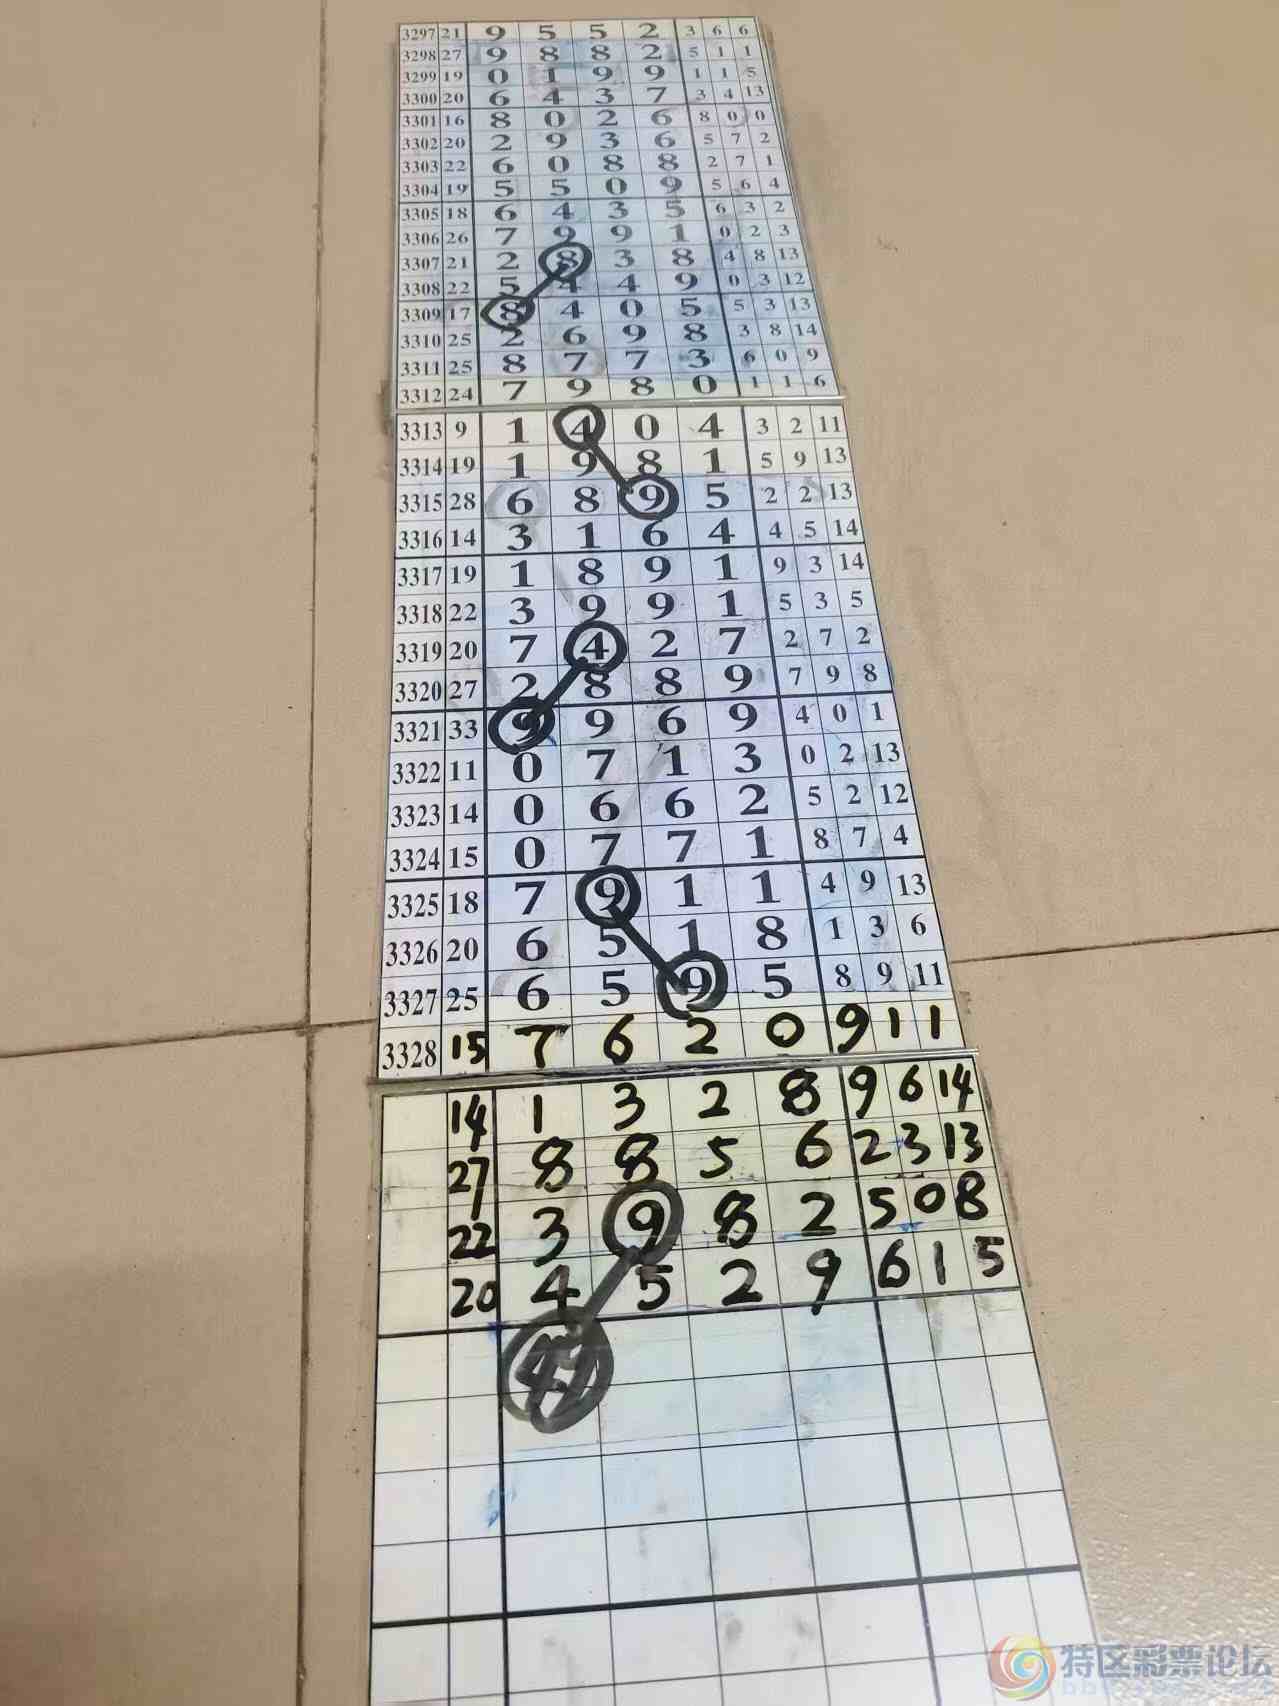 3297 21 9 5 5 2 3 6 6
3298 27 9 8 8 2 5 1 1
3299 19 0 1 9 9 1 1 5
3300 20 6 4 3 7 3 4 13
3301 16 8 0 2 6 8 0 0
3302 20 2 9 3 6 5 7 2
3303 22 6 0 8 8 2 7 1
3304 19 5 5 0 9 5 6 4
3305 18 6 4 3 5 6 3 2
3306 26 7 9 9 1 0 2 3
3307 21 2 8 3 8 4 8 13
3308 22 5 4 4 9 0 3 12
3309 17 8 4 0 5 5 3 13
3310 25 2 6 9 8 3 8 14
3311 25 8 7 7 3 6 0 9
3312 24 7 9 8 0 1 1 6
3313 9 1 4 0 4 3 2 11
3314 19 1 9 8 1 5 9 13
3315 28 6 8 9 5 2 2 13
3316 14 3 1 6 4 4 5 14
3317 19 1 8 9 1 9 3 14
3318 22 3 9 9 1 5 3 5
3319 20 7 4 2 7 2 7 2
3320 27 2 8 8 9 7 9 8
3321 33 9 9 6 9 4 0 1
3322 11 0 7 1 3 0 2 13
3323 14 0 6 6 2 5 2 12
3324 15 0 7 7 1 8 7 4
3325 18 7 9 1 1 4 9 13
3326 20 6 5 1 8 1 3 6
3327 25 6 5 9 5 8 9 11
3328 15 7 6 2 0 9 1 1
14 1 3 2 8 9 6 14
27 8 8 5 6 2 3 13
22 3 9 8 2 5 0 8
20 4 5 2 9 6 1 5
特区彩票论坛